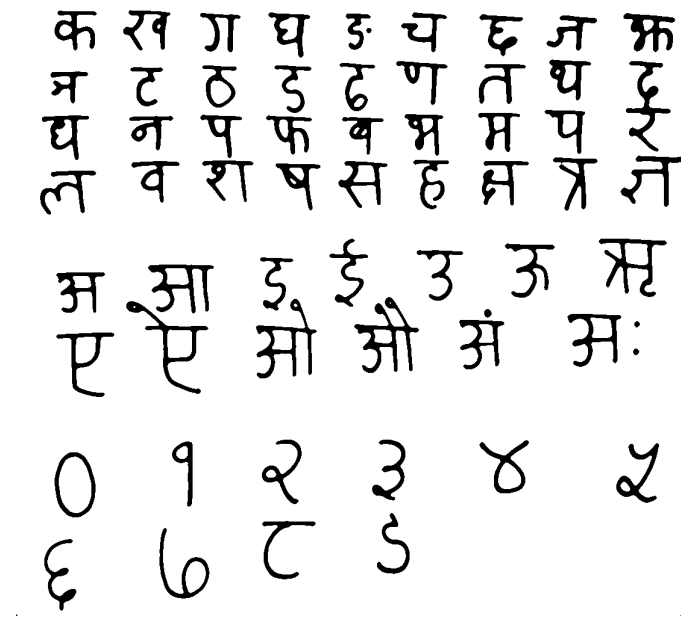 क ख ग घ ङ च छ ज झ
ञ ट ठ ड ढ ण त थ द
ध न प फ ब भ म य र
ल व श ष स ह क्ष त्र ज्ञ
अ आ इ ई उ ऊ ऋ
ए ऐ ओ औ अं अः
० १ २ ३ ४ ५
६ ७ ८ ९